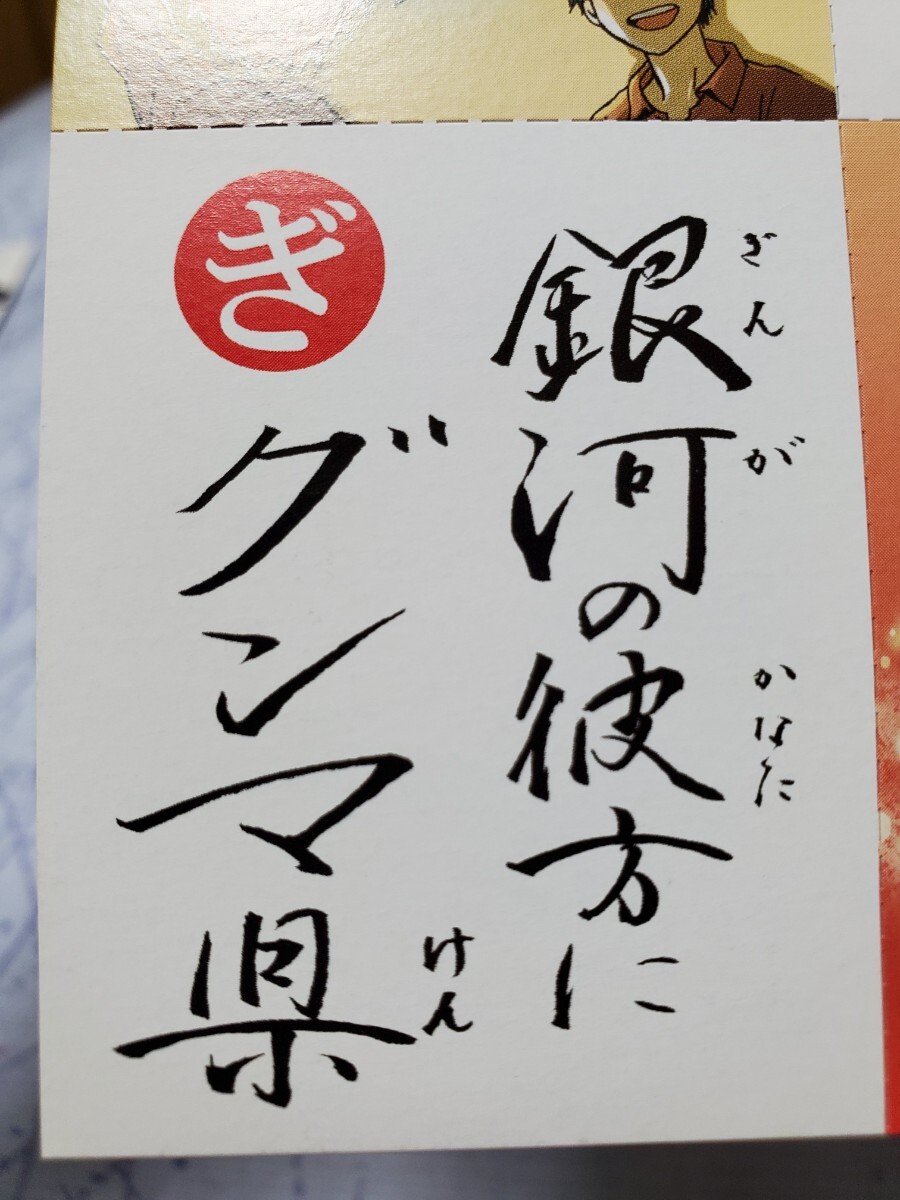 銀河の彼方に
ぎんが
かなた
ぎ
グンマ県
けん